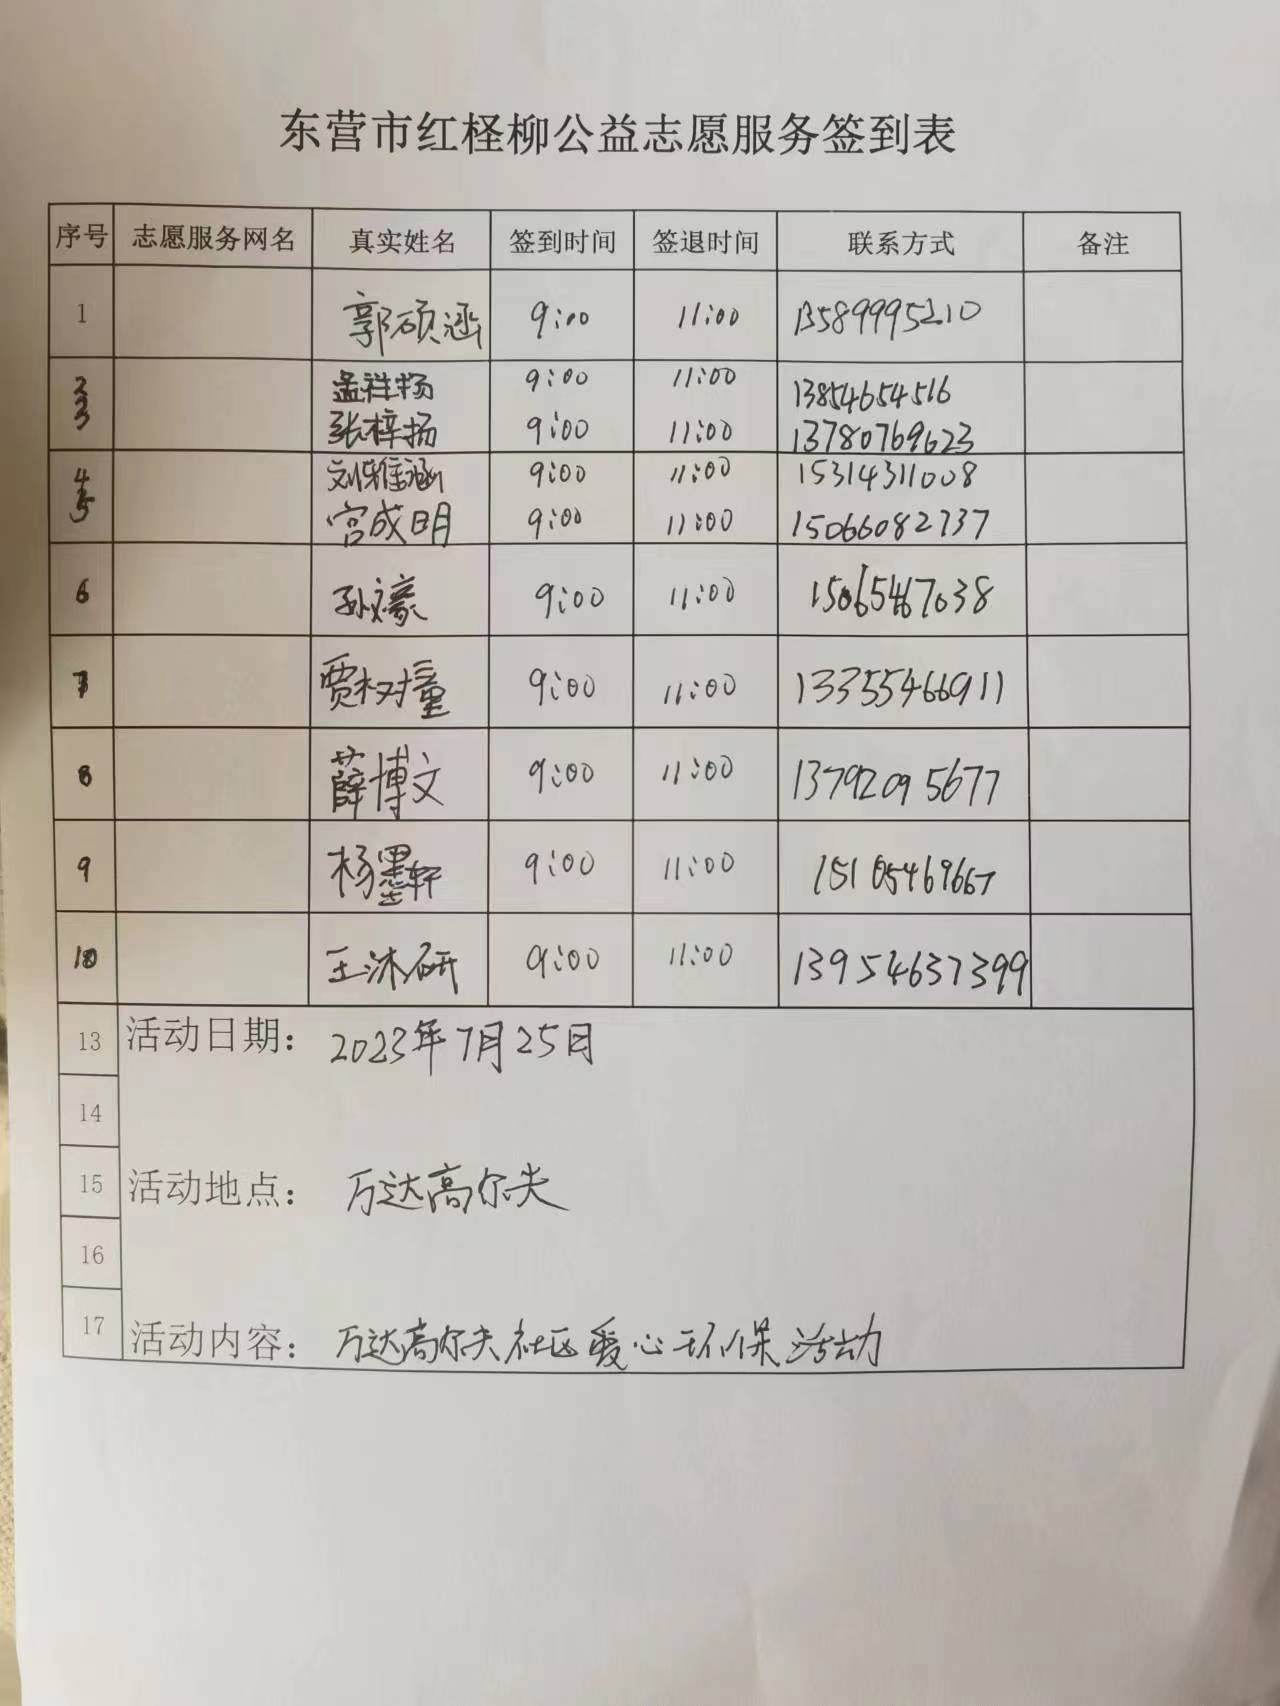 东营市红柽柳公益志愿服务签到表
序号 志愿服务网名 真实姓名 签到时间 签退时间 联系方式 备注
1 郭硕涵 9:00 11:00 13589995210
2 孟祥扬 9:00 11:00 13854654516
3 张梓扬 9:00 11:00 13780769623
4 刘雅涵 9:00 11:00 15314311008
5 宫成明 9:00 11:00 15066082737
6 孙豪 9:00 11:00 15065467038
7 贾权童 9:00 11:00 13355466911
8 薛博文 9:00 11:00 13792095677
9 杨墨轩 9:00 11:00 15105469667
10 王沐研 9:00 11:00 13954637399
13 活动日期: 2023年7月25日
14
15 活动地点: 万达高尔夫
16
17 活动内容: 万达高尔夫社区爱心环保活动